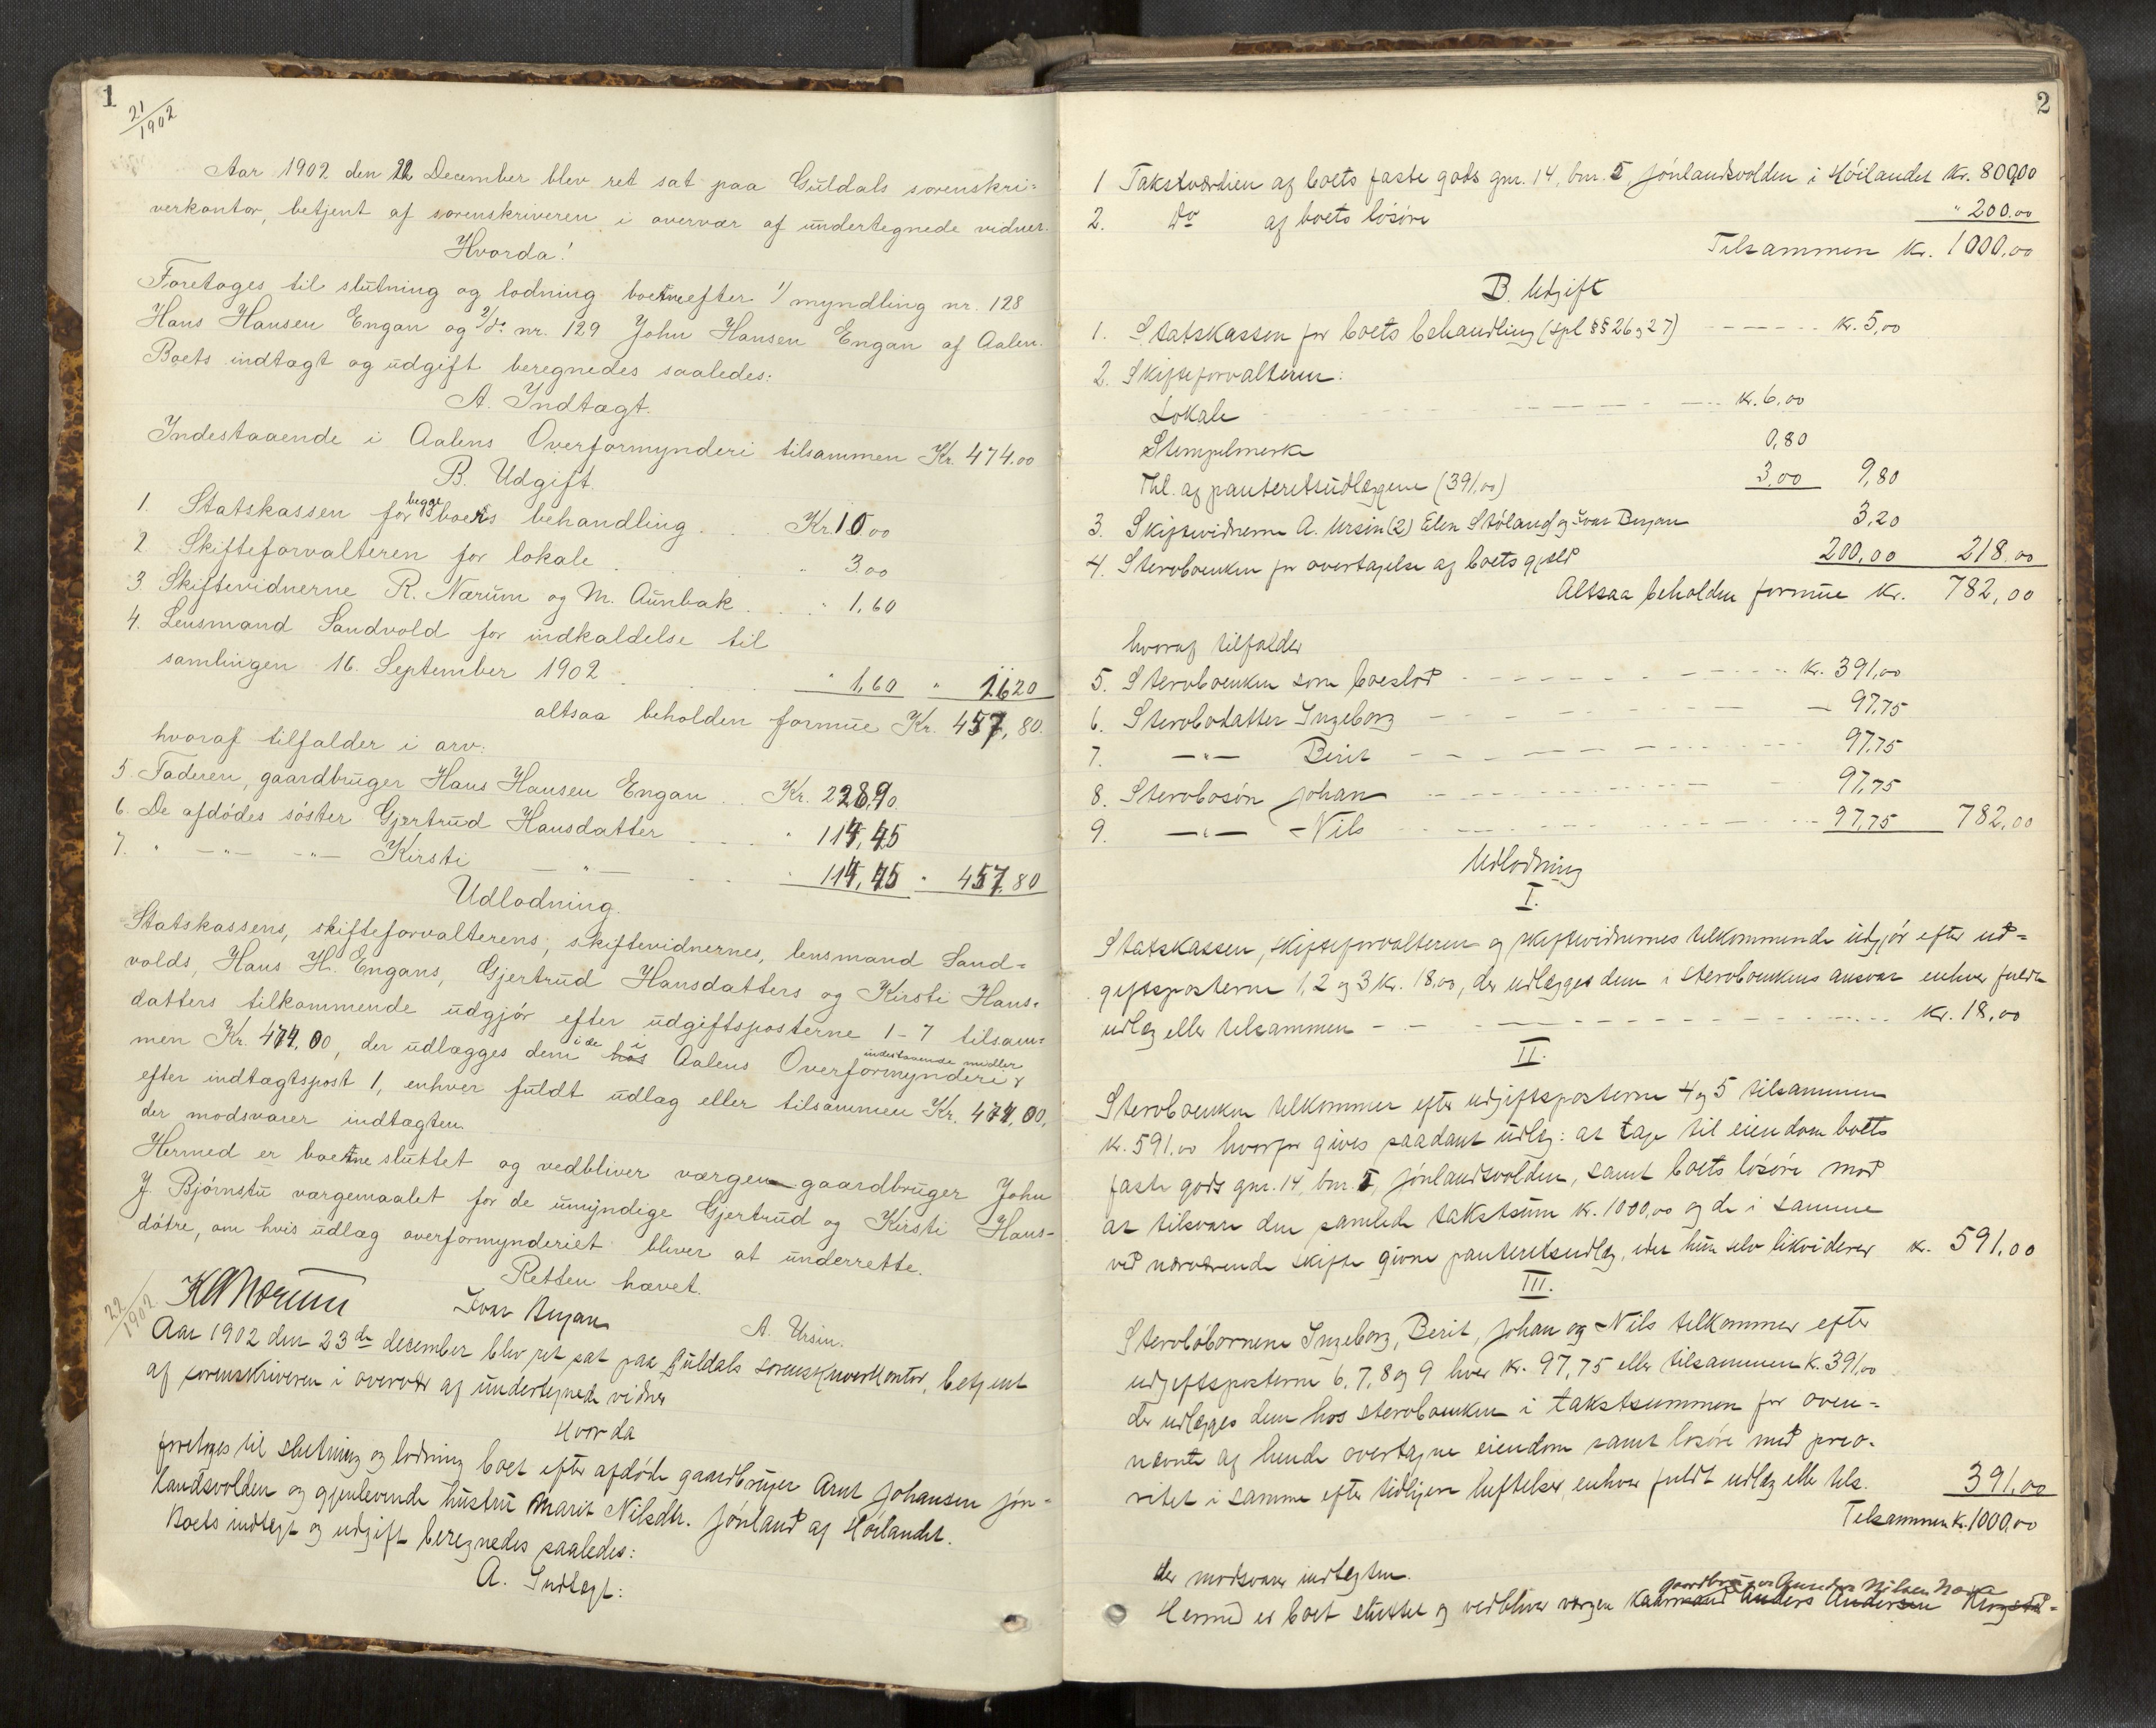 1
21/1902
Aar 1902 den 22 December blev ret sat paa Guldals sorenskri-
verkontor, betjent af sorenskriveren i overvær af undertegnede vidner.
Hvorda!
Foretoges til slutning og lodning boerne efter 1/ myndling nr. 128
Hans Hansen Engan og 2/ do nr. 129 John Hansen Engan af Aalen.
Boets indtægt og udgift beregnedes saaledes:
A. Indtægt.
Indestaaende i Aalens Overformynderi tilsammen Kr. 474.00
B. Udgift.
1. Statskassen for begge boers behandling . . . Kr. 10.00
2 Skifteforvalteren for lokale . . . " 3.00
3. Skiftevidnerne R. Nærum og M. Aunbak . . . " 1,60
4. Lensmand Sandvold for indkaldelse til
samlingen 16. September 1902 . . . " 1,60 " 16 20
altsaa beholden formue Kr. 457,80.
hvoraf tilfalder i arv:
5. Faderen, gaardbruger Hans Hansen Engan . . Kr. 228,90.
6. De afdødes søster Gjertrud Hansdatter . . . " 114,45
7. " —"— —"— Kirsti —"— . . . " 114,45 " 457,80
Udlodning.
Statskassens, skifteforvalterens, skiftevidnernes, lensmand Sand-
volds, Hans H. Engans, Gjertrud Hansdatters og Kirsti Hans-
datters tilkommende udgjør efter udgiftsposterne 1-7 tilsam-
men Kr. 474.00, der udlægges dem i de hos i Aalens Overformynderi indestaaende midler
efter indtægtspost 1, enhver fuldt udlæg eller tilsammen Kr. 474,00,
der modsvarer indtægten.
Hermed er boerne sluttet og vedbliver værgen gaardbruger John
J. Bjørnstu værgemaalet for de umyndige Gjertrud og Kirsti Hans-
døtre, om hvis udlæg overformynderiet bliver at underrette.
Retten hævet.
K A Nærum
Ivar Bryan
A. Ursin.
22/1902
Aar 1902 den 23de december blev ret sat paa Guldals sorenskriverkontor, betjent
af sorenskriveren i overvær af undertegnede vidner
Hvorda
foretoges til slutning og lodning boet efter afdøde gaardbruger Arnt Johansen Jøn-
landsvolden og gjenlevende hustru Marit Nilsdtr. Jønland af Høilandet.
Boets indtægt og udgift beregnedes saaledes:
A. Indtægt:
2
1 Takstværdien af boets faste gods gnr. 14, bnr. 5, Jønlandsvolden i Høilandet Kr. 800,00
2. do af boets løsøre " 200.00
Tilsammen Kr. 1000,00
B. Udgift
1. Statskassen for boets behandling (spl §§ 26 og 27) - - - - - Kr. 5,00
2. Skifteforvalteren:
Lokale - - - - - Kr. 6,00
Stempelmerke 0,80
Thl. af panteretsudlæggene (391,00) 3,00 9,80
3. Skiftevidnerne A. Ursin (2) Elen Støland og Ivar Bryan 3,20
4. Stervboenken for overtagelse af boets gjæld 200,00 218.00
Altsaa beholden formue Kr. 782,00
hvoraf tilfalder
5. Stervboenken som boeslod - - - - - Kr. 391,00
6. Stervbodatter Ingeborg - - - - - 97,75
7. —"— Berit - - - - - 97,75
8. Stervbosøn Johan - - - - - 97,75
9. —"— Nils - - - - - 97,75 782,00
Udlodning
I.
Statskassen, skifteforvalteren og skiftevidnernes tilkommende udgjør efter ud-
giftsposterne 1, 2 og 3 kr. 18,00, der udlægges dem i stervboenkens ansvar enhver fuldt
udlæg eller tilsammen - - - - - Kr. 18,00
II.
Stervboenken tilkommer efter udgiftsposterne 4 og 5 tilsammen
Kr. 591,00 hvorfor gives saadant udlæg: at tage til eiendom boets
faste gods gnr. 14, bnr. 5, Jønlandsvolden, samt boets løsøre mod
at tilsvare den samlede takstsum kr. 1000,00 og de i samme
ved nærværende skifte givne panteretsudlæg, idet hun selv likviderer Kr. 591,00
III.
Stervbobørnene Ingeborg, Berit, Johan og Nils tilkommer efter
udgiftsposterne 6, 7, 8 og 9 hver kr. 97,75 eller tilsammen K. 391,00
der udlægges dem hos stervboenken i takstsummen for oven-
nævnte af hende overtagne eiendom samt løsøre med prio-
ritet i samme efter tidligere heftelser, enhver fuldt udlæg eller tils. 391,00
Tilsammen Kr. 1000,00
der modsvarer indtægten.
gaardbruger Nilsen
Hermed er boet sluttet og vedbliver værgen Kaarmand Anders Andersen